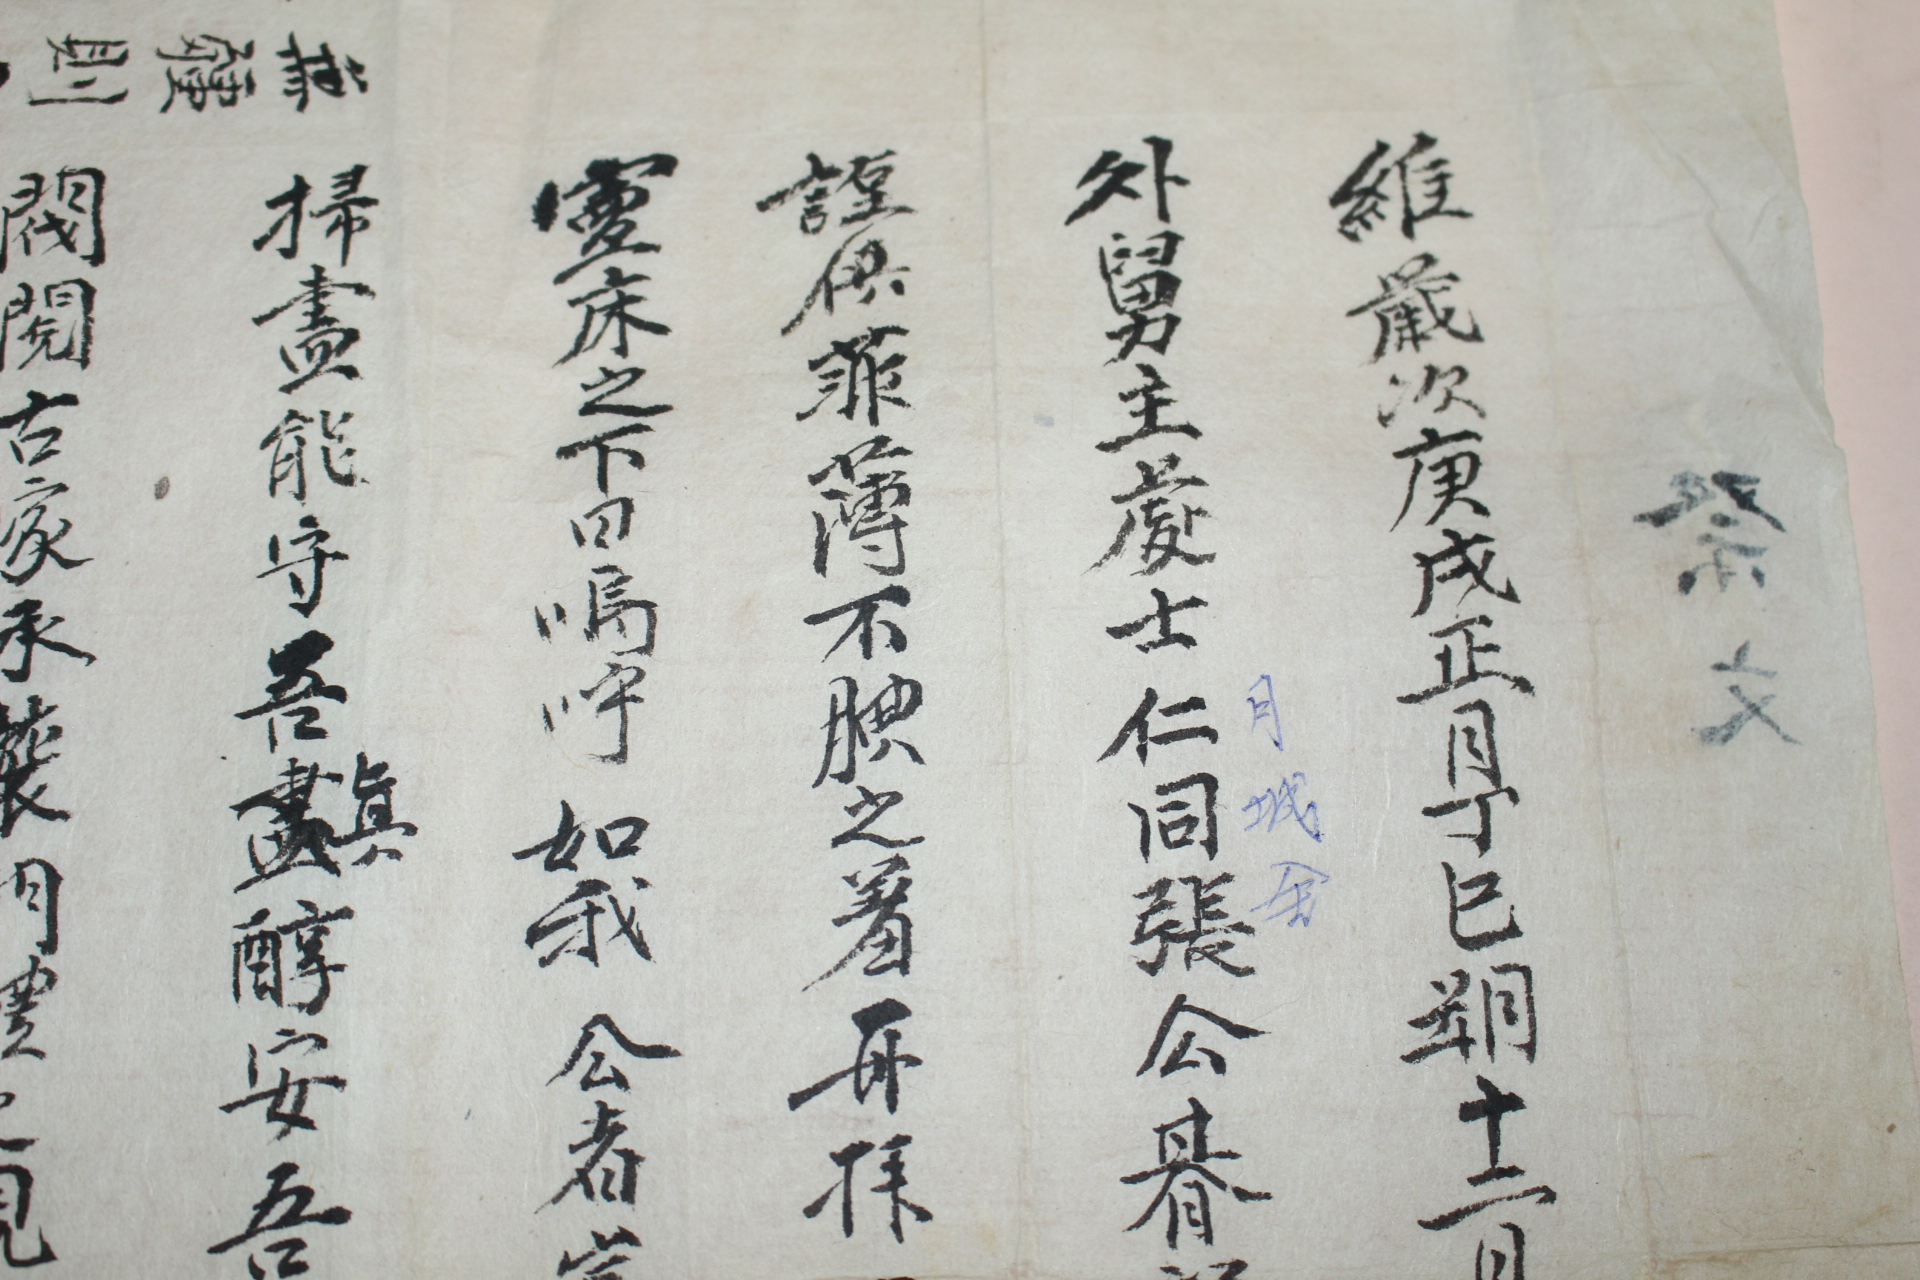 祭文
維歲次庚戌正月丁巳朔十二月
外舅主處士仁同張公朞
月城金
謹供菲薄不腆之羞再拜
靈床之下曰嗚呼如我公者
掃盡能守吾眞醇安吾
閥閱古家承襲
則